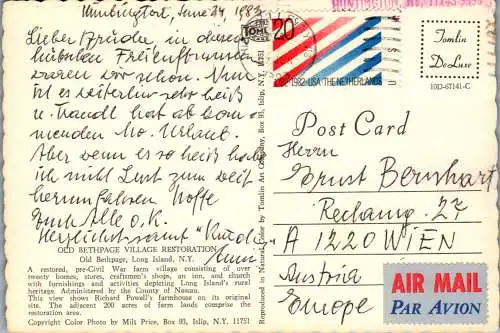 Huntington, June 24, 1983
Lieber Brüder, in diesem
hübschen Freilicht
waren wir schon. Nun
ist es weiterhin sehr heiß
u. Traudl hat ab kom-
menden Mo. Urlaub.
Aber wenn es so heiß
ich nicht Lust zum weit
herumfahren. Hoffe
Euch Alle O.K.
Herzlichst samt
OLD BETHPAGE VILLAGE RESTORATION
Old Bethpage, Long Island, N.Y.
A restored, pre-Civil War farm village consisting of over
twenty homes, stores, craftsmen's shops, an inn, and church
with furnishings and activities depicting Long Island's rural
heritage. Administered by the County of Nassau.
This view shows Richard Powell's farmhouse on its original
site. The adjacent 200 acres of farm lands comprise the
restoration area.
Copyright Color Photo by Milt Price, Box 93, Islip, N.Y. 11751
Reproduced in Natural Color by Tomlin Art Company, Box 93, Islip, N.Y. 11751
TOMLIN
20
1782-1982 · USA · THE NETHERLANDS
Tomlin
De Luxe
101D-67141-C
Post Card
Herrn
Ernst Bernhart
27
A 1220 WIEN
Austria
Europe
AIR MAIL
PAR AVION